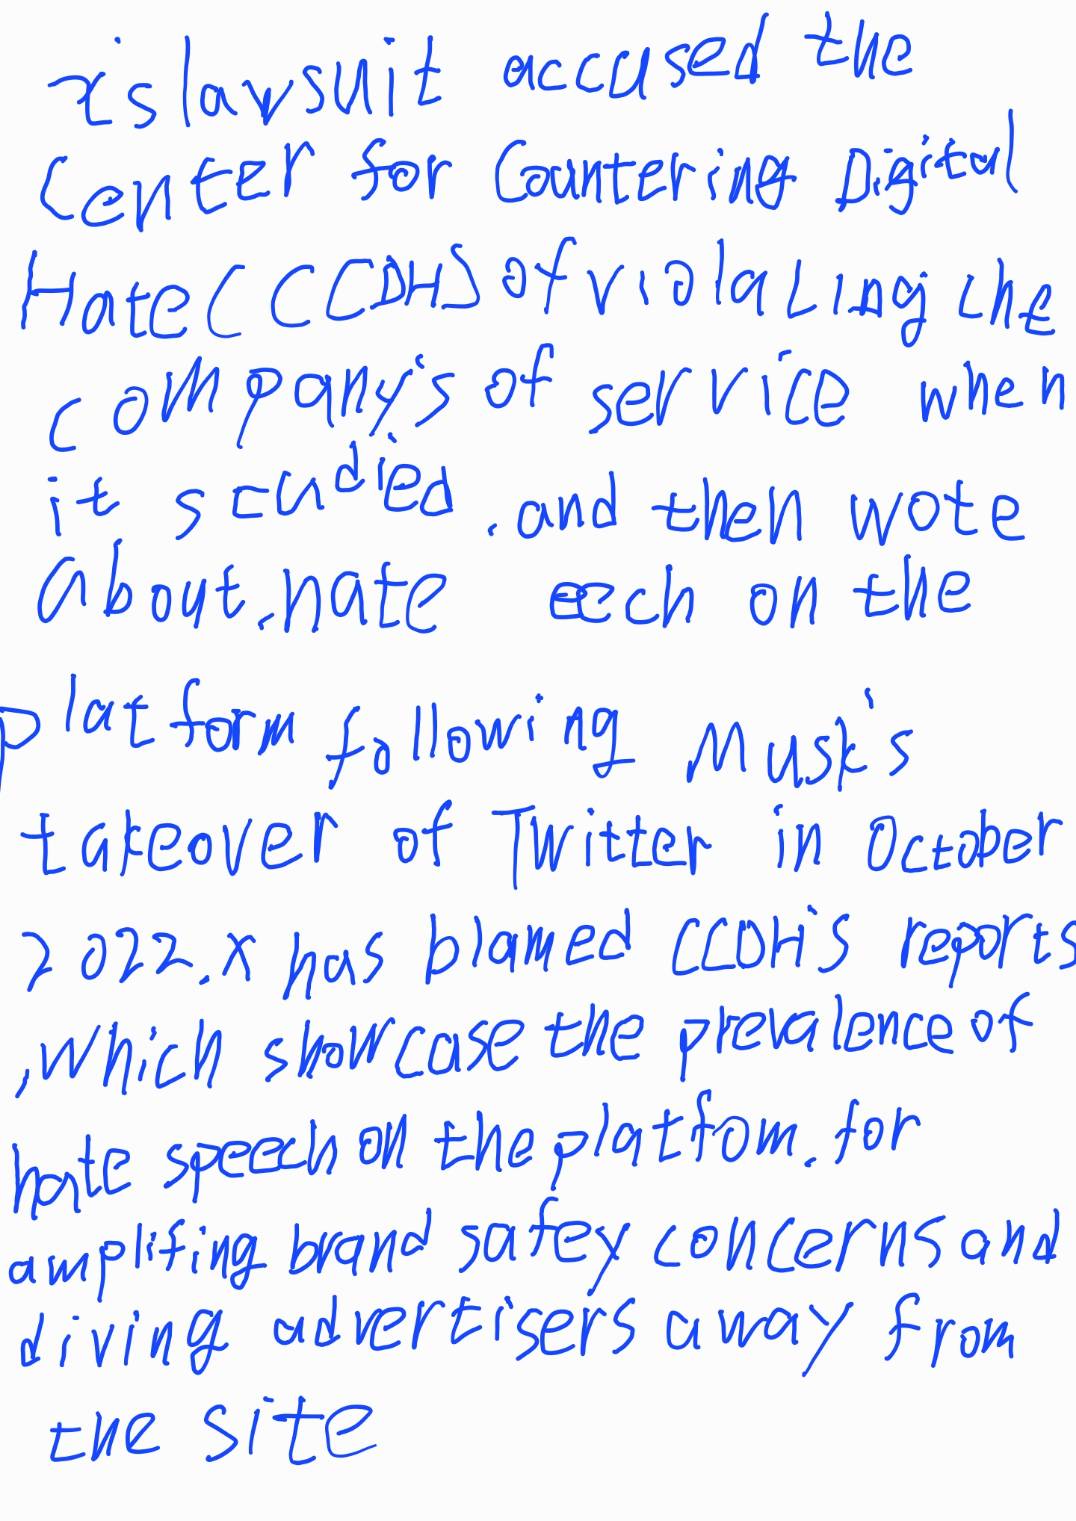 x's lawsuit accused the
Center for Countering Digital
Hate (CCDH) of violating the
company's of service when
it studied, and then wote
about, hate eech on the
platform following Musk's
takeover of Twitter in October
2022. X has blamed CCDH's reports
, which showcase the prevalence of
hate speech on the platfom, for
amplifing brand safey concerns and
diving advertisers away from
the site